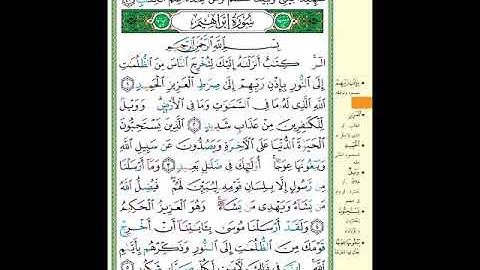 شهيدا بيني وبينكم ومن عنده علم الكتب
سُورَةُ إِبْرَاهِيمَ
بِسْمِ ٱللَّهِ ٱلرَّحْمَٰنِ ٱلرَّحِيمِ
الٓر كِتَٰبٌ أَنزَلْنَٰهُ إِلَيْكَ لِتُخْرِجَ ٱلنَّاسَ مِنَ ٱلظُّلُمَٰتِ
إِلَى ٱلنُّورِ بِإِذْنِ رَبِّهِمْ إِلَىٰ صِرَٰطِ ٱلْعَزِيزِ ٱلْحَمِيدِ ١
ٱللَّهِ ٱلَّذِى لَهُۥ مَا فِى ٱلسَّمَٰوَٰتِ وَمَا فِى ٱلْأَرْضِ وَوَيْلٌ
لِّلْكَٰفِرِينَ مِنْ عَذَابٍ شَدِيدٍ ٢ ٱلَّذِينَ يَسْتَحِبُّونَ
ٱلْحَيَوٰةَ ٱلدُّنْيَا عَلَى ٱلْءَاخِرَةِ وَيَصُدُّونَ عَن سَبِيلِ ٱللَّهِ
وَيَبْغُونَهَا عِوَجًا أُو۟لَٰٓئِكَ فِى ضَلَٰلٍۭ بَعِيدٍ ٣ وَمَآ أَرْسَلْنَا
مِن رَّسُولٍ إِلَّا بِلِسَانِ قَوْمِهِۦ لِيُبَيِّنَ لَهُمْ فَيُضِلُّ ٱللَّهُ
مَن يَشَآءُ وَيَهْدِى مَن يَشَآءُ وَهُوَ ٱلْعَزِيزُ ٱلْحَكِيمُ
٤ وَلَقَدْ أَرْسَلْنَا مُوسَىٰ بِـَٔايَٰتِنَآ أَنْ أَخْرِجْ
قَوْمَكَ مِنَ ٱلظُّلُمَٰتِ إِلَى ٱلنُّورِ وَذَكِّرْهُم بِأَيَّىٰمِ
ٱللَّهِ إِنَّ فِى ذَٰلِكَ لَءَايَٰتٍ لِّكُلِّ صَبَّارٍ شَكُورٍ ٥